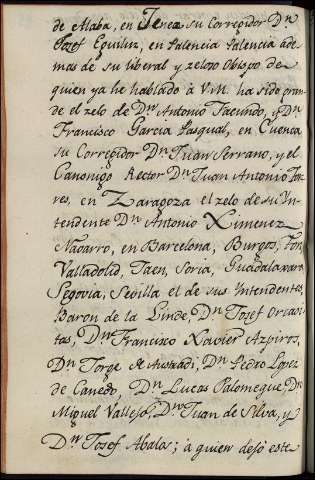 de Alaba, en Jenea su Corregidor Dn
Josef Eguiluz, en Palencia Palencia ade
mas de su liberal y zeloso Obispo de
quien ya he hablado à V.M. ha sido gran
de el zelo de Dn Antonio Facundo, y Dn
Francisco Garcia Pasqual, en Cuenca
su Corregidor Dn Juan Serrano, y el
Canonigo Rector Dn Juan Antonio Tor
res, en Zaragoza el zelo de su In
tendente Dn Antonio Ximenez
Navarro, en Barcelona, Burgos, Tor
Valladolid, Jaen, Soria, Guadalaxara
Segovia, Sevilla el de sus Intendentes
Baron de la Linde, Dn Josef Orcasi
tas, Dn Francisco Xavier Azpiros,
Dn Jorge Austradi, Dn Pedro Lopez
de Cañedo, Dn Lucas Palomeque, Dn
Miguel Vallejo, Dn Juan de Silva, y
Dn Josef Abalas; à quien dejò este